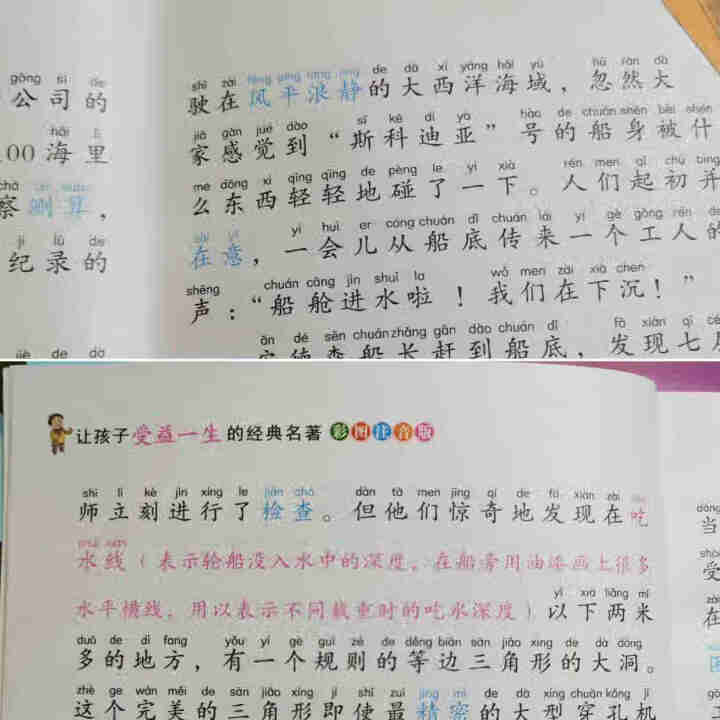 gōng sī de
公司的
hǎi lǐ
100 海里
察测算，
jì lù de
纪录的
shǐ zài fēng píng làng jìng de dà xī yáng hǎi yù hū rán dà
驶在风平浪静的大西洋海域，忽然大
jiā gǎn jué dào sī kē dí yà hào de chuán shēn bèi shén
家感觉到“斯科迪亚”号的船身被什
me dōng xi qīng qīng de pèng le yí xià rén men qǐ chū bìng
么东西轻轻地碰了一下。人们起初并
zài yì yí huì er cóng chuán dǐ chuán lái yí gè gōng rén de
在意，一会儿从船底传来一个工人的
shēng chuán cāng jìn shuǐ la wǒ men zài xià chén
声：“船舱进水啦！我们在下沉！”
ān dé sēn chuán zhǎng gǎn dào chuán dǐ fā xiàn qī
安德森船长赶到船底，发现七
让孩子受益一生的经典名著 彩图注音版
shī lì kè jìn xíng le jiǎn chá dàn tā men jīng qí de fā xiàn zài chī
师立刻进行了检查。但他们惊奇地发现在吃
shuǐ xiàn
水线（表示轮船没入水中的深度。在船旁用油漆画上很多
yǐ xià liǎng mǐ
水平横线，用以表示不同载重时的吃水深度）以下两米
duō de dì fang yǒu yí gè guī zé de děng biān sān jiǎo xíng de dà dòng
多的地方，有一个规则的等边三角形的大洞。
zhè ge wán měi de sān jiǎo xíng jí shǐ zuì jīng mì de dà xíng chuān kǒng jī
这个完美的三角形即使最精密的大型穿孔机
当
受
在